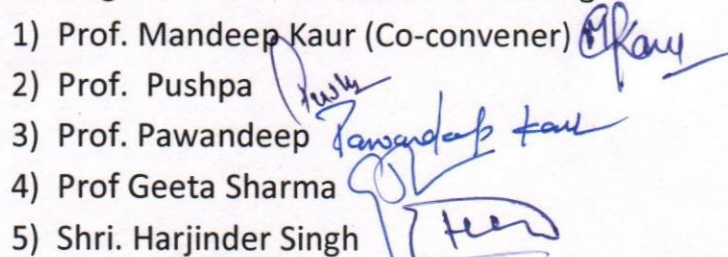 1) Prof. Mandeep Kaur (Co-convener) Kaur
2) Prof. Pushpa Push
3) Prof. Pawandeep Pawandeep Kaur
4) Prof Geeta Sharma
5) Shri. Harjinder Singh